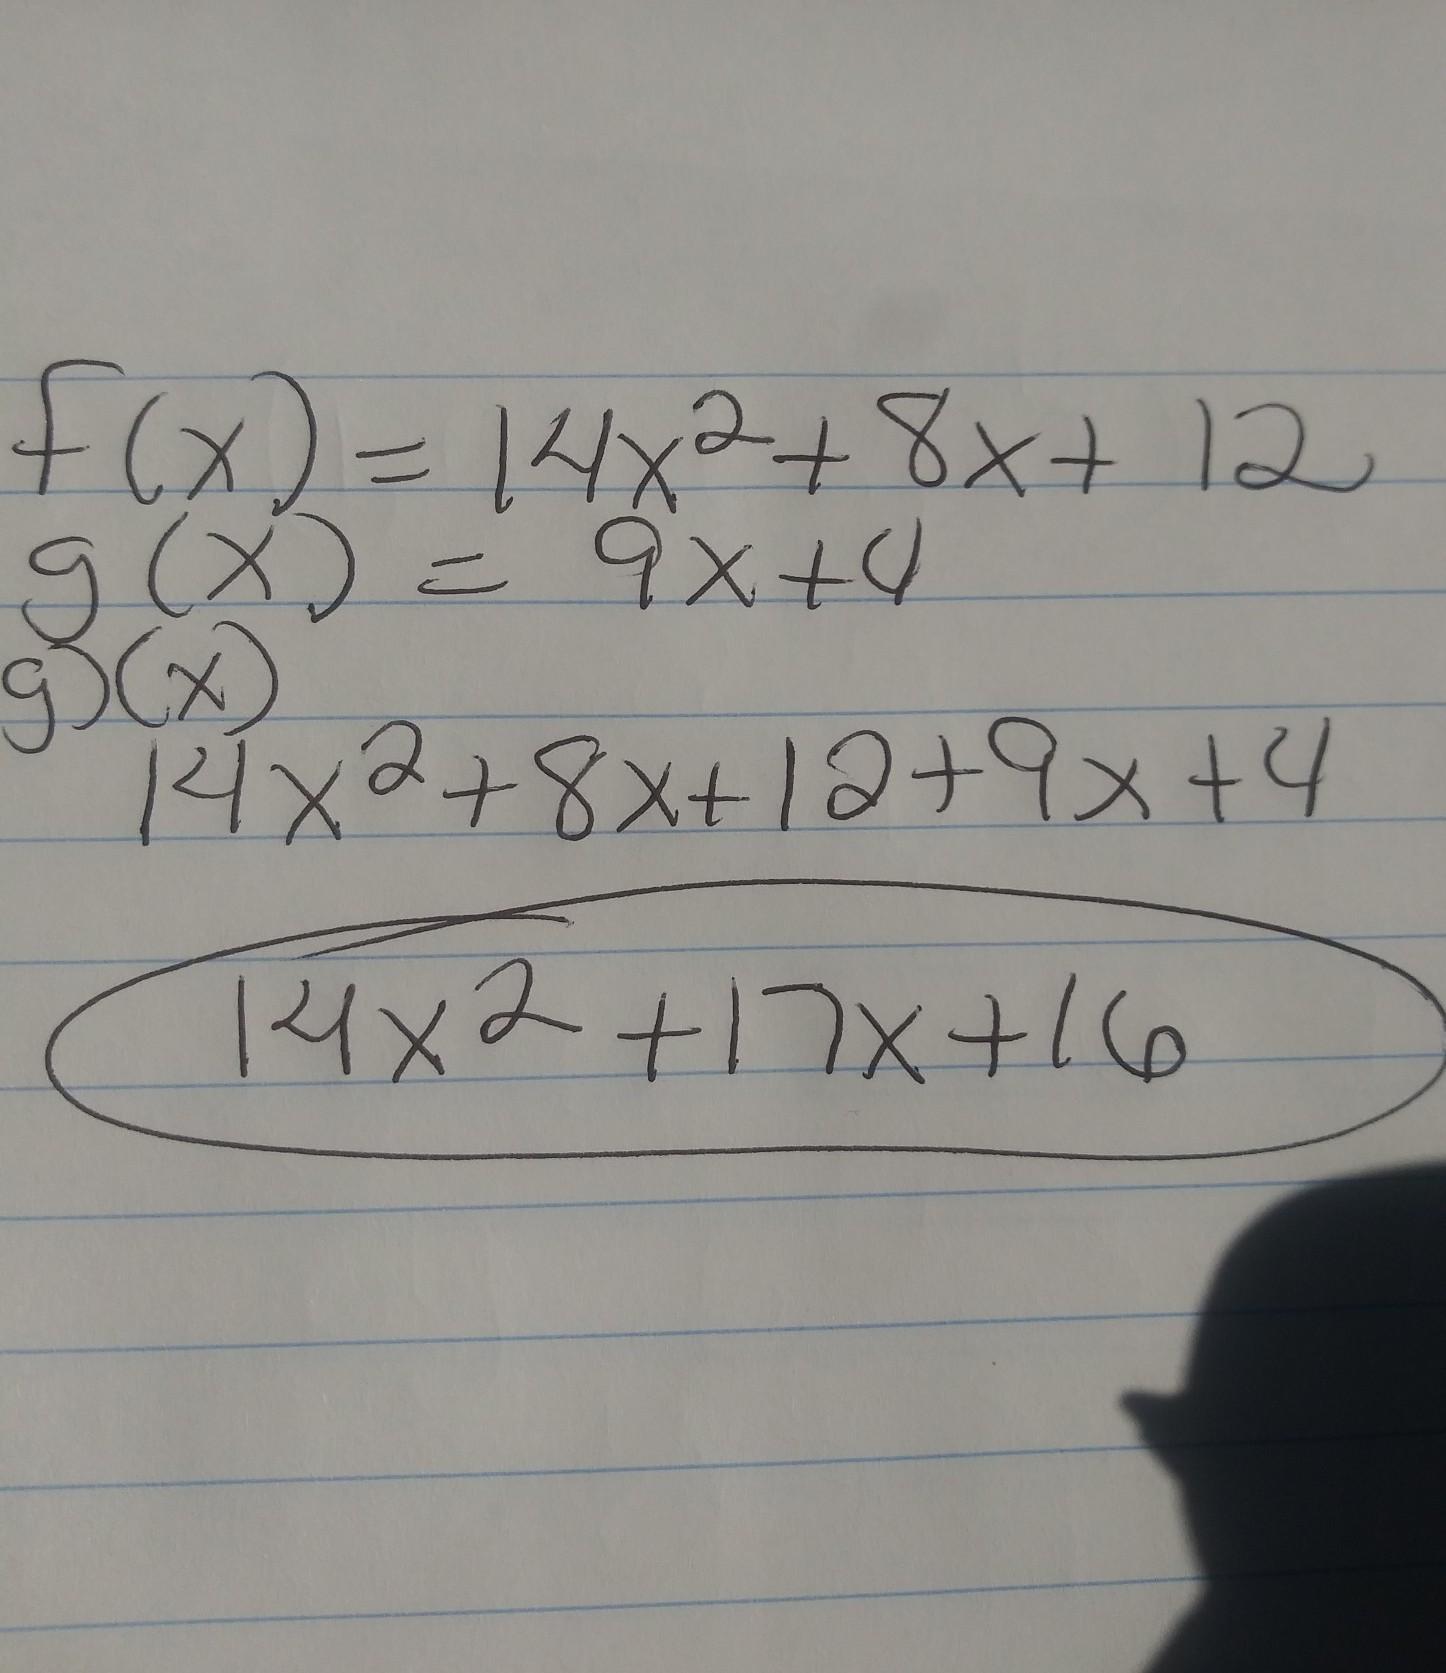 f(x) = 14x² + 8x + 12
g(x) = 9x + 4
g)(x)
14x² + 8x + 12 + 9x + 4
14x² + 17x + 16